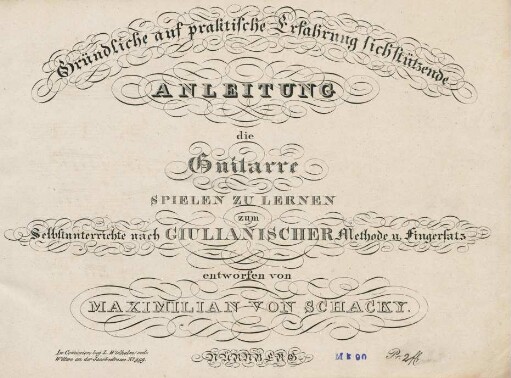 Gründliche auf praktische Erfahrung sich stützende
ANLEITUNG
die
Guitarre
SPIELEN ZU LERNEN
zum
Selbstunterrichte nach GIULIANISCHER Methode u. Fingersatz
entworfen von
MAXIMILIAN VON SCHACKY.
In Comission bey L. Wilhelm
Witwe an der
NÜRNBERG.
M k 90
Pr. 2